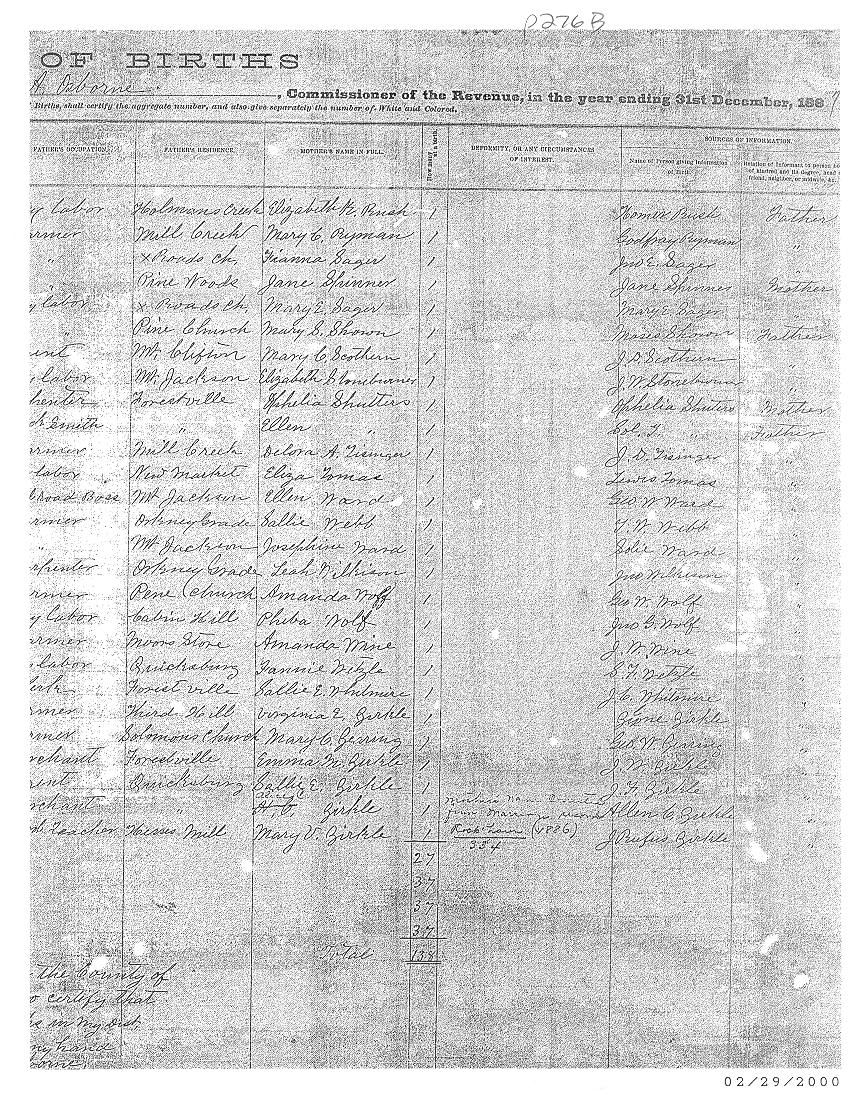 p276B
OF BIRTHS
A. Osborne, Commissioner of the Revenue, in the year ending 31st December, 1887
Births, shall certify the aggregate number, and also give separately the number of White and Colored.
FATHER'S OCCUPATION. FATHER'S RESIDENCE. MOTHER'S NAME IN FULL. How many at a birth. DEFORMITY, OR ANY CIRCUMSTANCES OF INTEREST. SOURCES OF INFORMATION.
Name of Person giving Information of Birth. Relation of Informant to person
of kindred and its degree, head
friend, neighbor, or midwife, &c.
y labor Holmans Creek Elizabeth R. Rush 1 Homer Rush Father
armer Mill Creek Mary C. Ryman 1 Godfray Ryman "
" x Roads Ch. Franna Sager 1 Jno E. Sager "
Pine Woods Jane Skinner 1 Jane Skinner Mother
y labor x Roads Ch. Mary E. Sager 1 Mary E. Sager "
" Pine Church Mary S. Shown 1 Moses Shown Father
ent Mt. Clifton Mary C. Scothern 1 J. D. Scothern "
labor Mt. Jackson Elizabeth Stoneburner 1 J. W. Stoneburner "
penter Forestville Ophelia Shutters 1 Ophelia Shutters Mother
k Smith " Ellen " 1 Sol. T. " Father
armer Mill Creek Delora A. Tisinger 1 J. D. Tisinger "
labor New Market Eliza Tomas 1 Lewis Tomas "
road Boss Mt Jackson Ellen Ward 1 Geo W Ward "
armer Orkney Grade Sallie Webb 1 T. W. Webb "
" Mt Jackson Josephine Ward 1 Solie Ward "
rpenter Orkney Grade Leah Wilkison 1 Jno Wilkison "
armer Pene Church Amanda Wolf 1 Geo W. Wolf "
y labor Cabin Hill Phiba Wolf 1 Jno G. Wolf "
armer Moors Store Amanda Wine 1 J. W. Wine "
labor Quicksburg Fannie Wetzle 1 S. F. Wetzle "
erk Forestville Sallie E. Whitmire 1 J. C. Whitmire "
rmer Third Hill Virginia E. Zirkle 1 Zione Zirkle "
rmer Solomons Church Mary C. Zerring 1 Geo. W. Zerring "
rchant Forestville Emma M. Zirkle 1 J. W. Zirkle "
ent Quicksburg Sallie E. Zirkle 1 J. F. Zirkle "
rchant " Zirkle 1 from Marriage Allen C. Zirkle "
Teacher Hesses Mill Mary V. Zirkle 1 Rock'ham (1886) J Rufus Zirkle "
334
27
37
37
37
Total 138
the County of
o certify that
in my Dist.
my hand
02/29/2000